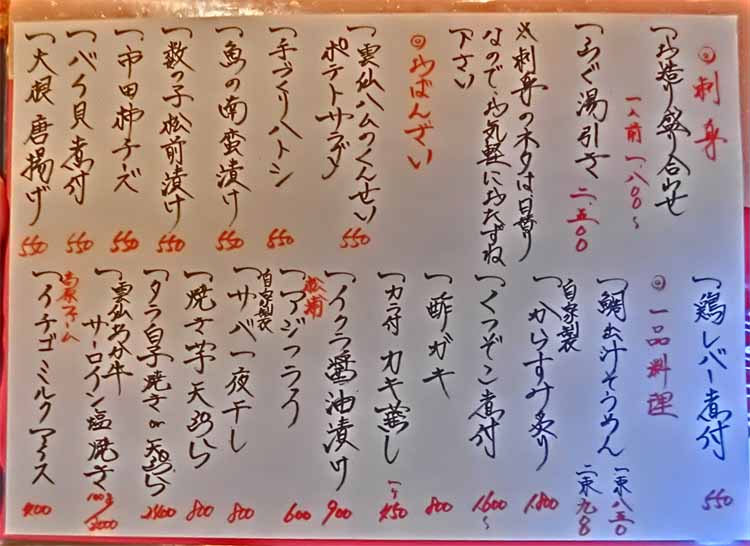 ◎刺身
一、お造り盛り合わせ
一人前 一、八〇〇～
一、ふぐ湯引き 二、五〇〇
※刺身のネタは日替り
なので、お気軽におたずね
下さい
◎おばんざい
一、雲仙ハムのくんせい
ポテトサラダ 550
一、手づくりハトシ 550
一、魚の南蛮漬け 550
一、数の子松前漬け 550
一、市田柿チーズ 550
一、バイ貝煮付 550
一、大根唐揚げ 550
一、鶏レバー煮付 550
◎一品料理
一、鯛出汁そうめん 一束八五〇
二束九八〇
自家製
一、からすみ炙り 1,800
一、くつぞこ煮付 1,600～
一、酢ガキ 800
一、カラ付カキ蒸し 一ヶ450
一、イクラ醤油漬け 900
松浦
一、アジフライ 600
自家製
一、サバ一夜干し 800
一、焼き芋天ぷら 800
一、タラ白子焼きor天ぷら 2400
一、雲仙あか牛
サーロイン塩焼き 100g/3000
一、イチゴミルクアイス 400